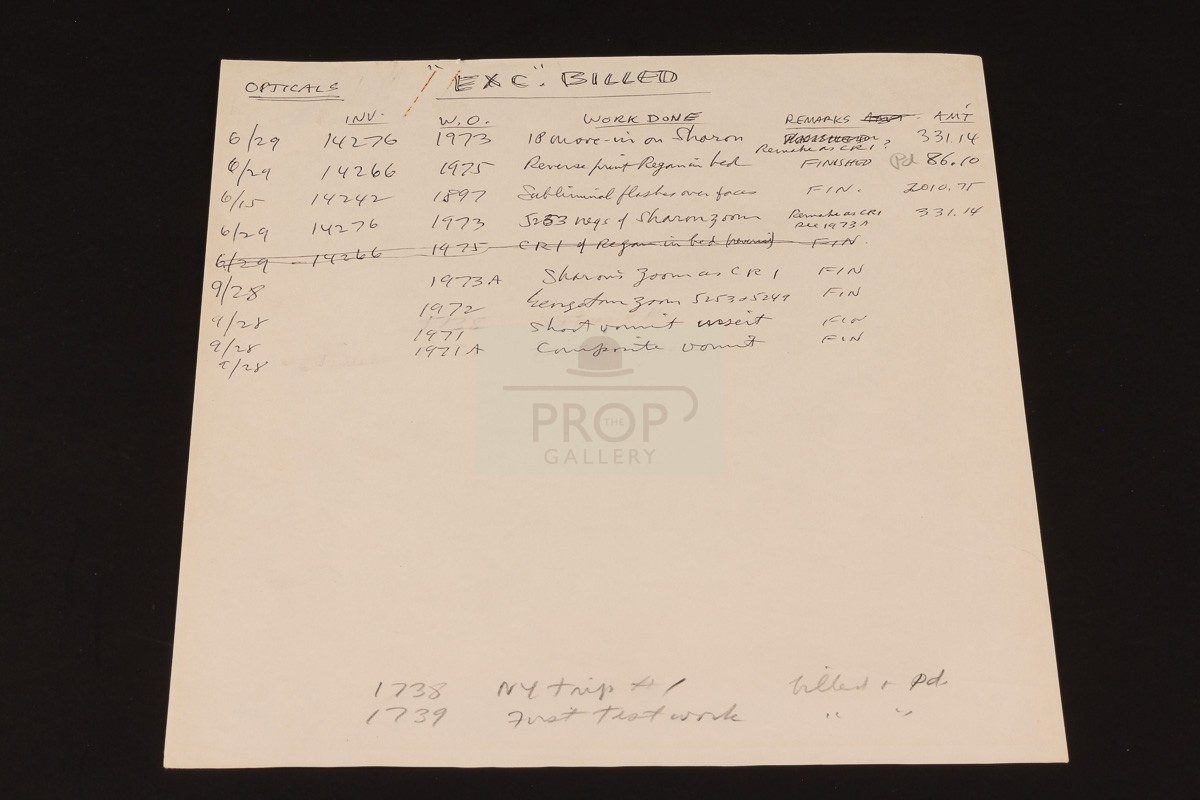 OPTICALS "EXC". BILLED
INV. W.O. WORK DONE REMARKS AMT
6/29 14276 1973 18 move-in on Sharon Remake as CRI? 331.14
6/29 14266 1975 Reverse print Regan in bed FINISHED Pd 86.10
6/15 14242 1897 Subliminal flashes over faces FIN. 2010.75
6/29 14276 1973 5253 negs of Sharon zoom Remake as CRI 331.14
see 1973A
6/29 14266 1975 CRI of Regan in bed (reverse) FIN.
9/28 1973A Sharon's zoom as CRI FIN
9/28 1972 zoom 5253 5249 FIN
9/28 1971 Shoot vomit insert FIN
9/28 1971A Composite vomit FIN
THE
PROP
GALLERY
1738 NY trip #1 billed + pd.
1739 First test work " "